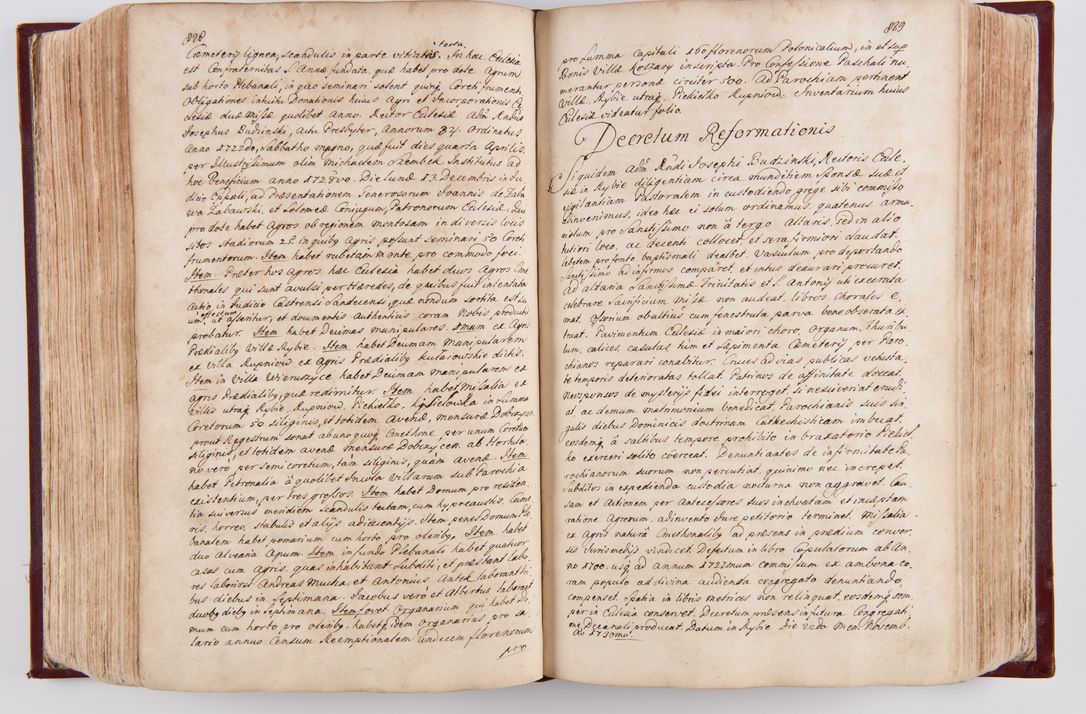 828
Cæmeterij lignea, scandulis in parte vitiatis tecta. In hac Ecclesia
est Confraternitas S. Annæ fundata, quæ habet pro dote Agrum
sub horto Plebanali, in quo seminari solent quinq Coreti frument,
Obligationes intuitu Donationis huius Agri et Incorporationis Ec
clesiæ duæ Missæ quolibet Anno. Rector Ecclesiæ Adm Rndus
Josephus Budzinski, actu Presbyter, Annorum 84. Ordinatus
Anno 1722do, Sabbatho magno, quæ fuit dies quarta Aprilis,
per Illustrissimum olim Michaelem Szembek. Institutus ad
hoc Beneficium anno 1728vo. Die Lunæ 13. Decembris in Ju
dicio Eppali, ad Præsentationem Generosorum Joannis de Zaba
wa Zabawski, et Salomeæ Coniugum, Patronorum Ecclesiæ,
pro dote habet Agros ob regionem montosam in diversis locis
sitos Stadiorum 25. in quibq Agris possunt seminari 50 Coreti
frumentorum. Item habet rubetum in monte, pro commodo foci.
Item. Præter hos Agros hæc Ecclesia habet duos Agros Cme
thonales qui sunt avulsi per Hæredes, de quibus fuit intentata
Actio in Judicio Castrensi Sandecensi, quæ nondum sortita est su
um effectum, ut asseritur, et documentis authenticis coram Nobis productis
probatur. Item habet Decimas manipulares. 1mam ex Agris
Prædialibq Villæ Rybie. Item habet Decimam Manipularem
ex Villa Rupniow ex Agris Prædialibq Kulasowskie dictis.
Item in Villa Wieruszyce habet Decimam manipularem ex
agris Prædialibq, quæ redimitur. Item habet Missalia ex
Villis utraq Rybie, Rupniow, Piekiełko, Kisielowka in summa
Coretorum 50 siliginis, et totidem avenæ, mensuræ Dobczycen
prout Regestrum sonat ab uno quoq Cmethone per unum Coretum
siliginis, et totidem avenæ mensuræ Dobczycen. ab Hortula
no vero per semicoretum, tàm siliginis, quàm avenæ. Item
habet Petronalia à quolibet Incola Villarum sub Parochia
existentium, per tres grossos. Item habet Domum pro residen
tia sui versus meridiem scandulis tectam, cum hypocaustis, Came
ris, horreo, stabulis et alijs adiacentijs. Item penes Domum Ple
banalem habet pomarium cum horto pro oleribq. Item habet
duo Alvearia Apum. Item in fundo Plebanali habet quatuor
casas cum agris, quas inhabitant Subditi, et præstant labo
res laboriosi Andreas Mucha, et Antonius Antek laborant tri
bus diebus in septimana. Jacobus vero et Albertus laborant
duobq diebq in septimana. Item fovet Organarium qui habet do
mum cum horto pro oleribq. habet idem Organarius, pro sa
lario annuo Censum Reemptionalem undecim florenorum
pro
829
pro summa Capituli 160 florenorum Polonicalium, in et sup
Bonis Villæ Koszary inscripta. Pro Confessione Paschali nu
merantur personæ circiter 500. Ad Parochiam pertinent
Villæ Rybie utraq, Piekiełko Rupniow. Inventarium huius
Ecclesiæ videatur folio.
Decretum Reformationis
Siquidem Adm Rndi Josephi Budzinski, Rectoris Eccle
siæ in Rybie diligentiam circa munditiem Sponsæ suæ et
vigilantiam Pastoralem in custodiendo grege sibi commisso
adinvenimus, ideo hæc ei solum ordinamus, quatenus arma
riolum pro Sanctissimo non à tergo Altaris, sed in alio
tutiori loco, ac decenti collocet, et sera firmiori claudat.
labetem pro fonte baptismali dealbet. Vasculum pro deportando
Sanctissimo ad infirmos comparet, et intus deaurari procuret.
Ad altaria Sanctissimæ Trinitatis et S. Antonij uti execrata
celebrare Sacrificium Missæ non audeat, libros chorales e,
mat. Ossorium obaltius cum fenestrula parva bene obserata ex
truat. Pavimentum Ecclesiæ in maiori choro, Organum, Thuribu
lum, calices, casulas, him et sæpimenta Cæmeterij per Paro,
chianos reparari conabitur. Cruces ad vias, publicas vetusta
te temporis deterioratas tollat. Patrinos de affinitate doceat.
Neosponsos de mysterijs fidei interroget, si nesciverint erudi
at, ac demum matrimonium benedicat. Parochianis suis sin
gulis diebus Dominicis doctrinam Catechisticam imbuat,
eosdemq à saltibus tempore prohibito in braxatorio Piekieł
ko exerceri solito coerceat. Denuntiantes de infirmitate Pa
rochianorum suorum non percutiat, quinimo nec increpet.
Subditos in expedienda custodia nocturna non aggravet. Cau
sam et Actionem per Antecessores suos inchoatam et incæptam
ratione Agrorum, adinvento Jure petitorio terminet. Missalia
ex Agris naturâ Cmethonalibq ad præsens in prædium conver
sis Juris medijs vindicet. Defectum in libro Copulatorum ab An
no 1700. usq ad annum 1722dum commissum ex ambona co
ram populo ad divina audienda congregato denuntiando,
compenset. Spatia in libris metrices non relinquat, eosdemq sem
per in Ecclesia conservet. Decretum præsens in futura Congregati
one Decanali producat. Datum in Rybie Die 22da Men. Novemb.
Ao 1730mo.